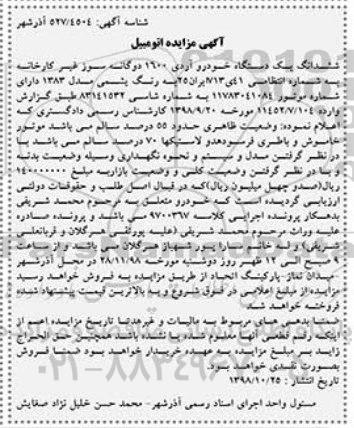 شناسه آگهی: ۵۲۷/۴۵۰۴ آذرشهر
آگهی مزایده اتومبیل
ششدانگ یک دستگاه خودرو آردی ۱۶۰۰ دوگانه سوز غیر کارخانه
به شماره انتظامی ۴۱ی۷۱۳ایران۲۵به رنگ یشمی مدل ۱۳۸۳ دارای
شماره موتور ۱۱۷۸۳۰۴۱۰۸۴ به شماره شاسی ۸۳۱۴۱۵۳۲ طبق گزارش
وارده ۱۱۴۵۲/۷/۱۰۴ مورخه ۱۳۹۸/۹/۲۰ کارشناس رسمی دادگستری که
اعلام نموده: وضعیت ظاهری حدود ۵۵ درصد سالم می باشد موتور
خاموش و باطری فرسوده‌و لاستیکها ۷۰ درصد سالم می باشد با
در نظر گرفتن مدل و سیستم و نحوه نگهداری وسیله وضعیت بدنه
و با در نظر گرفتن وضعیت کلی و وضعیت بازاربه مبلغ ۱۴۰۰۰۰۰۰۰
ریال(صدو چهل میلیون ریال)که در قبال اصل طلب و حقوقات دولتی
ارزیابی گردیده است که خودرو متعلق به مرحوم محمد شریفی
بدهکار پرونده اجرایی کلاسه ۹۷۰۰۳۶۷ می باشد و پرونده صادره
علیه وراث مرحوم محمد شریفی (علیه پورتقی هرگلان و قربانعلی
شریفی) و له خانم سارا پور شهباز هرگلان می باشد و از ساعت
۹ صبح الی ۱۲ ظهر روز دوشنبه مورخه ۲۸/۱۱/۹۸ در محل آذرشهر
میدان نماز- پارکینگ اتحاد از طریق مزایده به فروش خواهد رسید
مزایده از مبلغ اعلامی در فوق شروع و به بالاترین قیمت پیشنهاد شده
فروخته خواهد شد
ضمنا بدهی های مربوط به مالیات و غیره‌تا تاریخ مزایده اعم از
اینکه رقم قطعی آنها معلوم شده یا نشده باشد همچنین حق الحراج
زاید بر مبلغ مزایده به عهده خریدار خواهد بود ضمنا فروش
بصورت نقدی خواهد بود.
تاریخ انتشار : ۱۳۹۸/۱۰/۲۵
مسئول واحد اجرای اسناد رسمی آذرشهر- محمد حسن خلیل نژاد صفایش
۰۲۱-۸۸۳۴۹۶۷۰